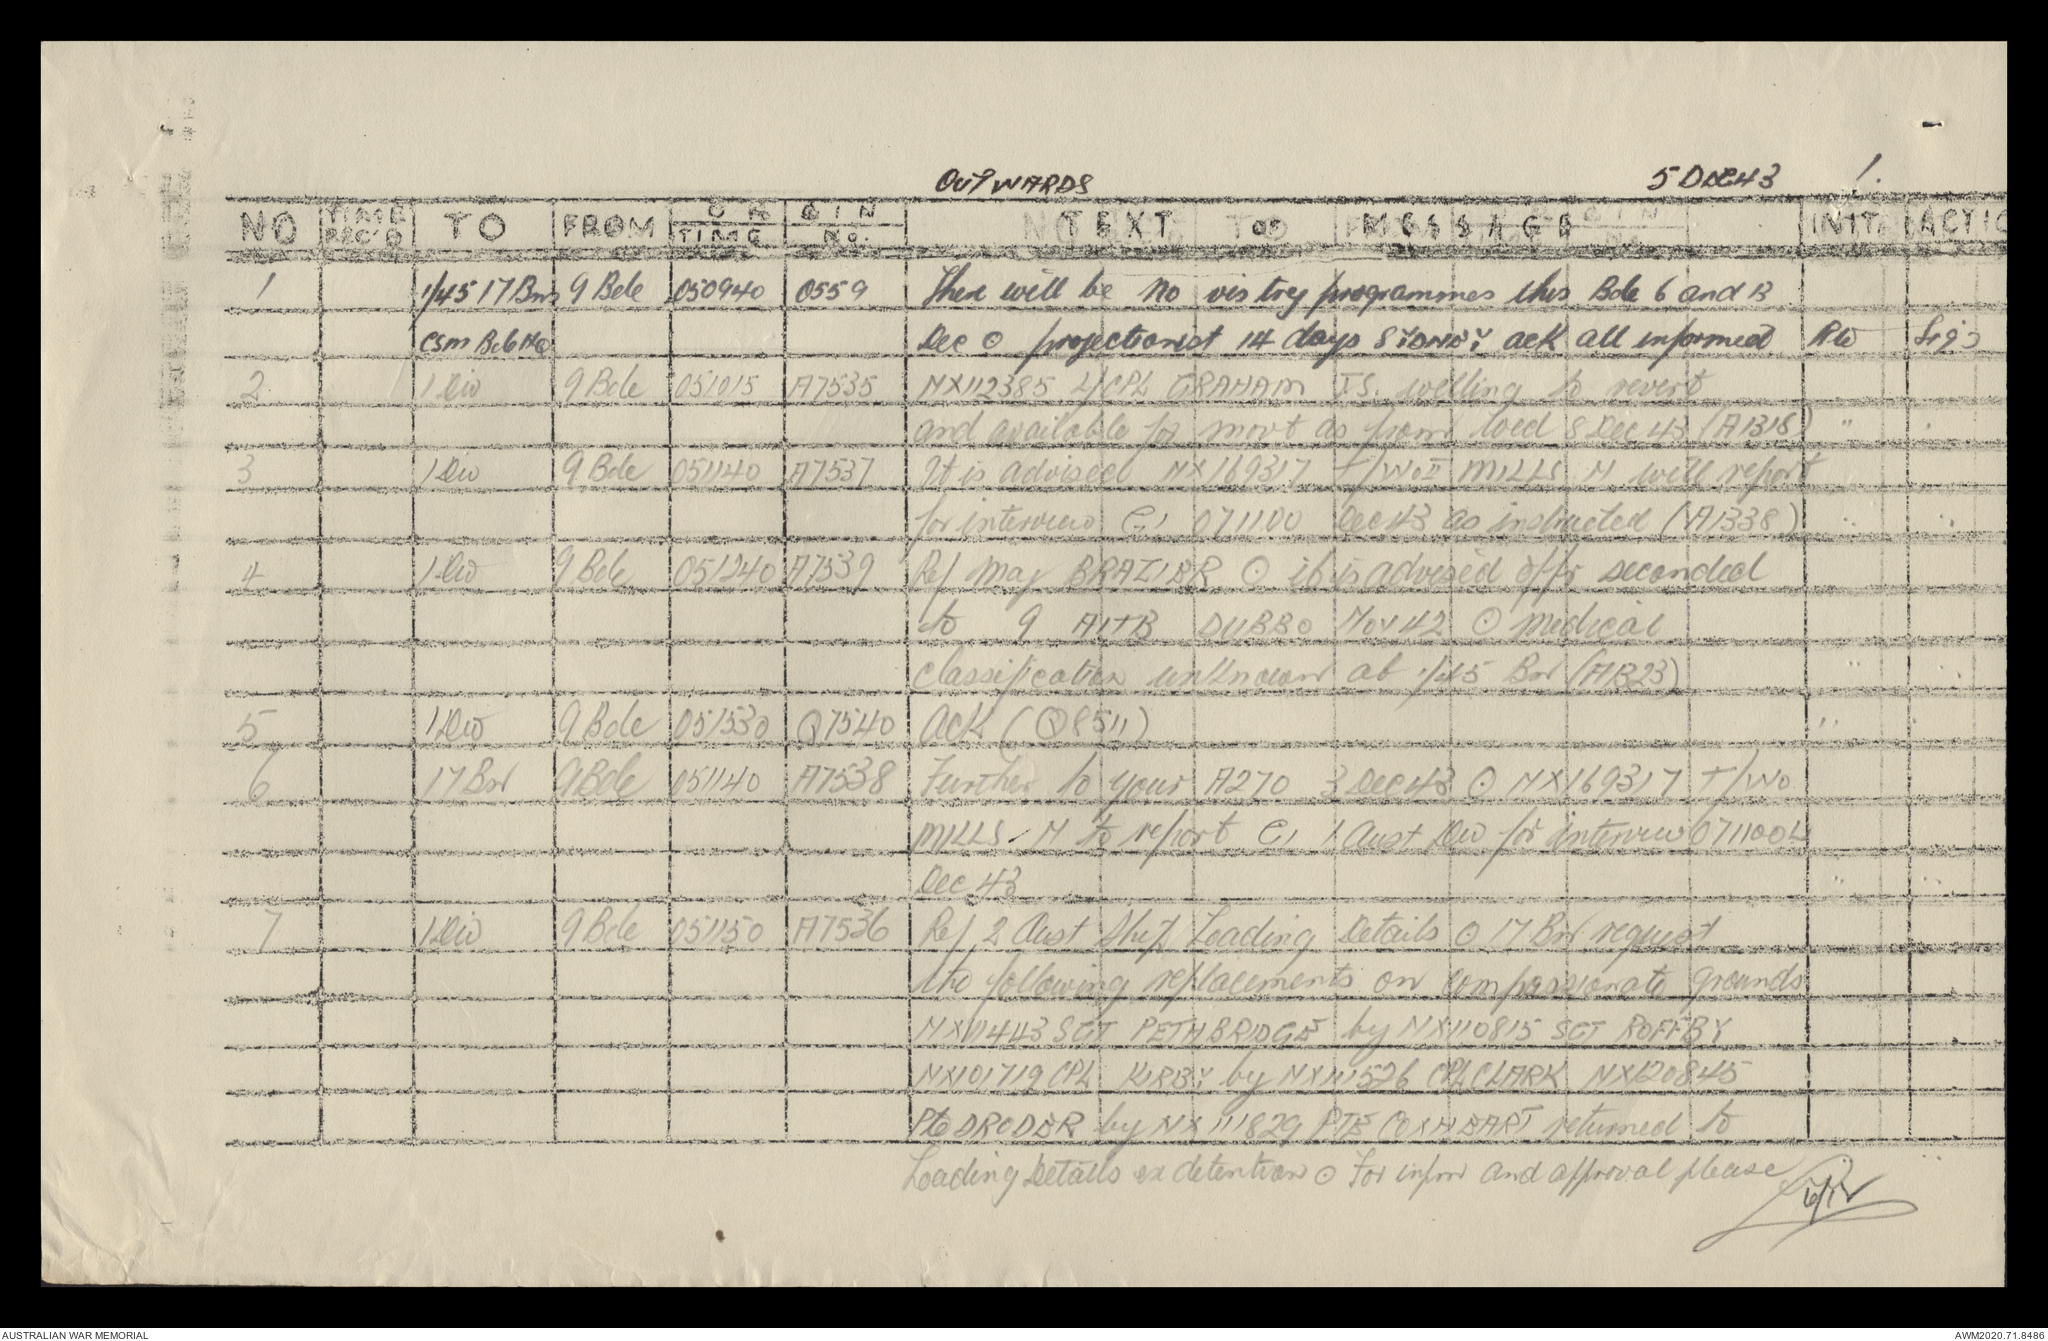 OUTWARDS 5 DEC 43 1.
NO TIME REC'D TO FROM OR TIME GIN No. TEXT OF MESSAGE INIT. ACTIO
1 1/45 17 Bns 9 Bde 050940 0559 There will be no vistry programmes this Bde 6 and 13
CSM Bde HQ Dec ⊙ projectionist 14 days SYDNEY ack all informed RW Sigs
2 1 Div 9 Bde 051015 A7535 NX112385 L/CPL GRAHAM I.S. willing to revert
and available for movt as from wed 8 Dec 43 (A1318) "
3 1 Div 9 Bde 051140 A7537 It is advised NX169317 T/WOII MILLS N will report
for interview G1 071100 Dec 43 as instructed (A1338) " "
4 1 Div 9 Bde 051240 A7539 Ref Maj BRAZIER ⊙ it is advised offr seconded
to 9 AITB DUBBO Nov 42 ⊙ medical
classification unknown at 1/45 Bn (A1323) " "
5 1 Div 9 Bde 051530 Q7540 Ack (Q8511) " "
6 17 Bn 9 Bde 051140 A7538 Further to your A270 3 Dec 43 ⊙ NX169317 T/WO
MILLS N to report G1 1 Aust Div for interview 071100L
Dec 43 " "
7 1 Div 9 Bde 051150 A7536 Ref 2 Aust Ship Loading Details ⊙ 17 Bn request
the following replacements on compassionate grounds
NX111443 SGT PETHBRIDGE by NX110815 SGT ROFFEY
NX101719 CPL KIRBY by NX111526 CPL CLARK NX120845
Pte DRODER by NX111829 PTE COXHEART returned to
Loading Details ex detention ⊙ For infm and approval please
AUSTRALIAN WAR MEMORIAL AWM2020.71.8486